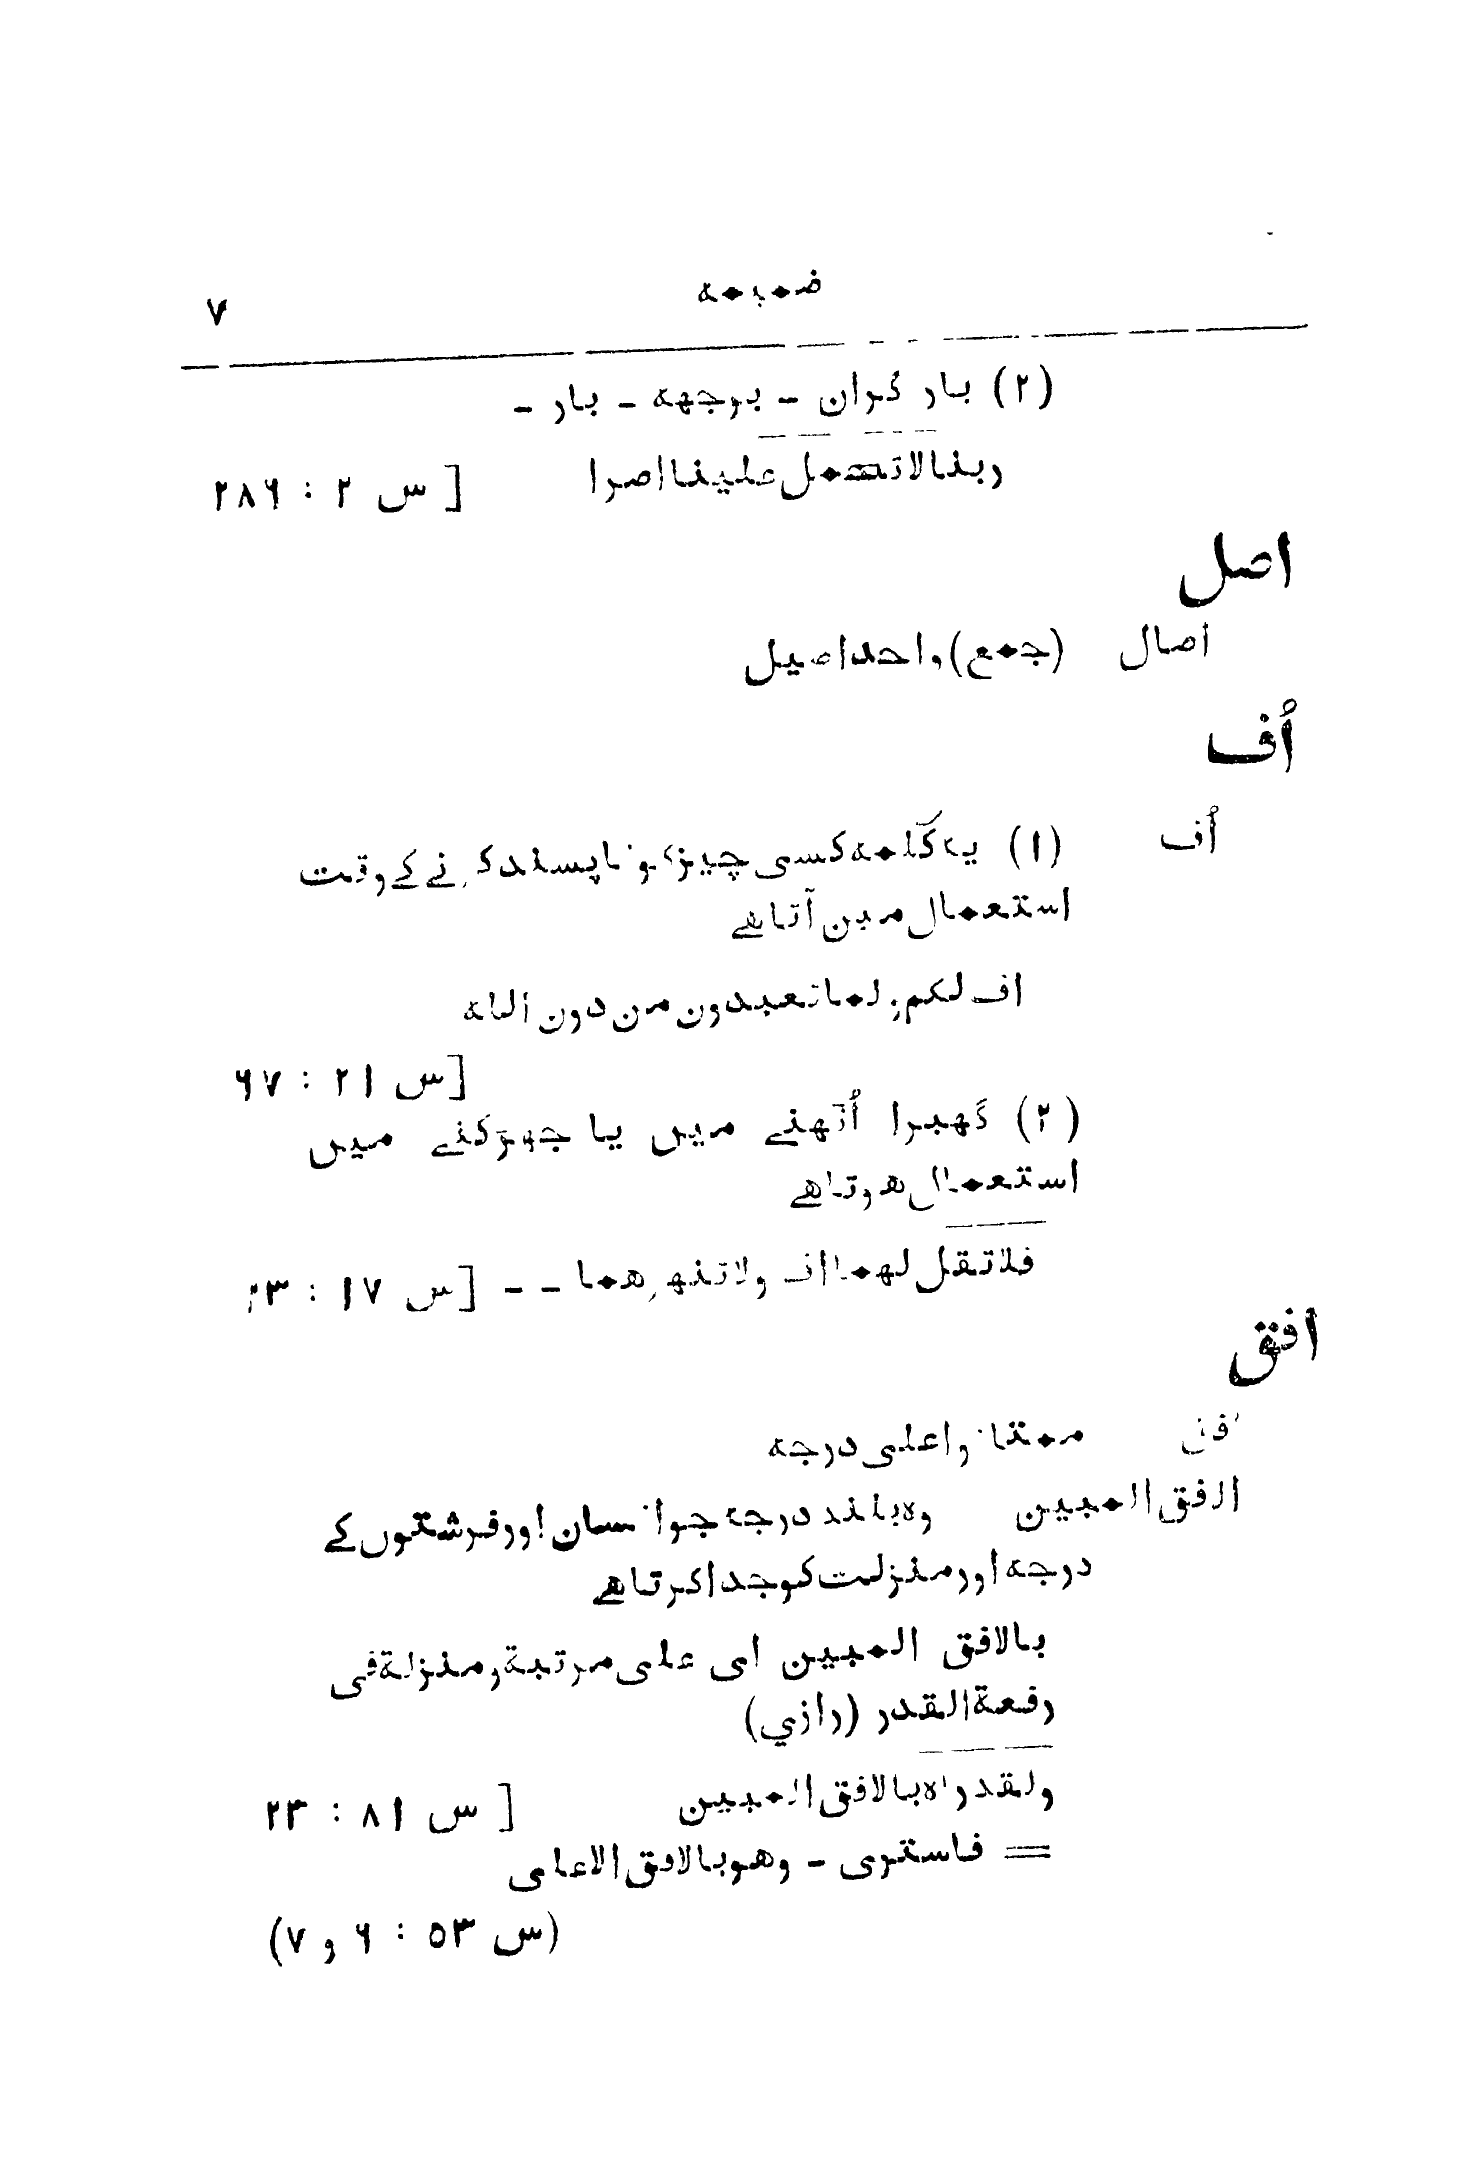 ضمیمہ ۷
(۲) بار گران - بوجھہ - بار -
ربنا لا تحمل علینا اصرا [س ۲ : ۲۸۶
اصل
اصال (جمع) واحد اصیل
اُف
اُف (۱) یہ کلمہ کسی چیز کو ناپسند کرنے کے وقت
استعمال میں آتا ھے
اف لکم و لما تعبدون من دون اللہ
[س ۲۱ : ۶۷
(۲) گھبرا اُٹھنے میں یا جھڑکنے میں
استعمال ھوتا ھے
فلا تقل لھما اف ولا تنھر ھما - - [س ۱۷ : ۲۳
افق
افق ممتاز و اعلی درجہ
الفق المبین وہ بلند درجہ جو انسان اور فرشتوں کے
درجہ اور منزلت کو جدا کرتا ھے
بالافق المبین ای علی مرتبة و منزلة فی
رفعة القدر (رازي)
ولقد راہ بالافق المبین [س ۸۱ : ۲۳
= فاستوی - وھو بالافق الاعلی
(س ۵۳ : ۶ و ۷)